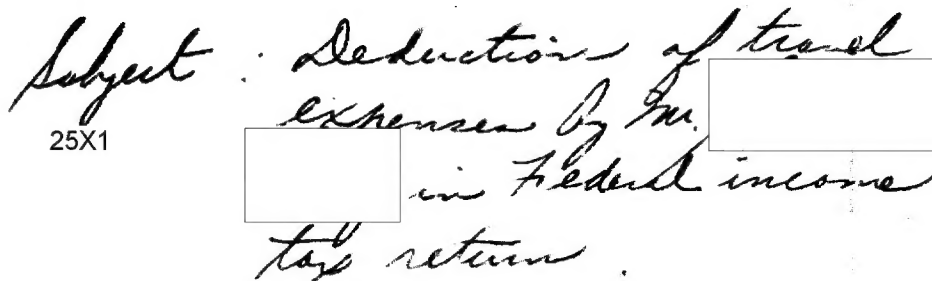 Subject : Deduction of travel
expenses by Mr.
25X1
in Federal income
tax return.